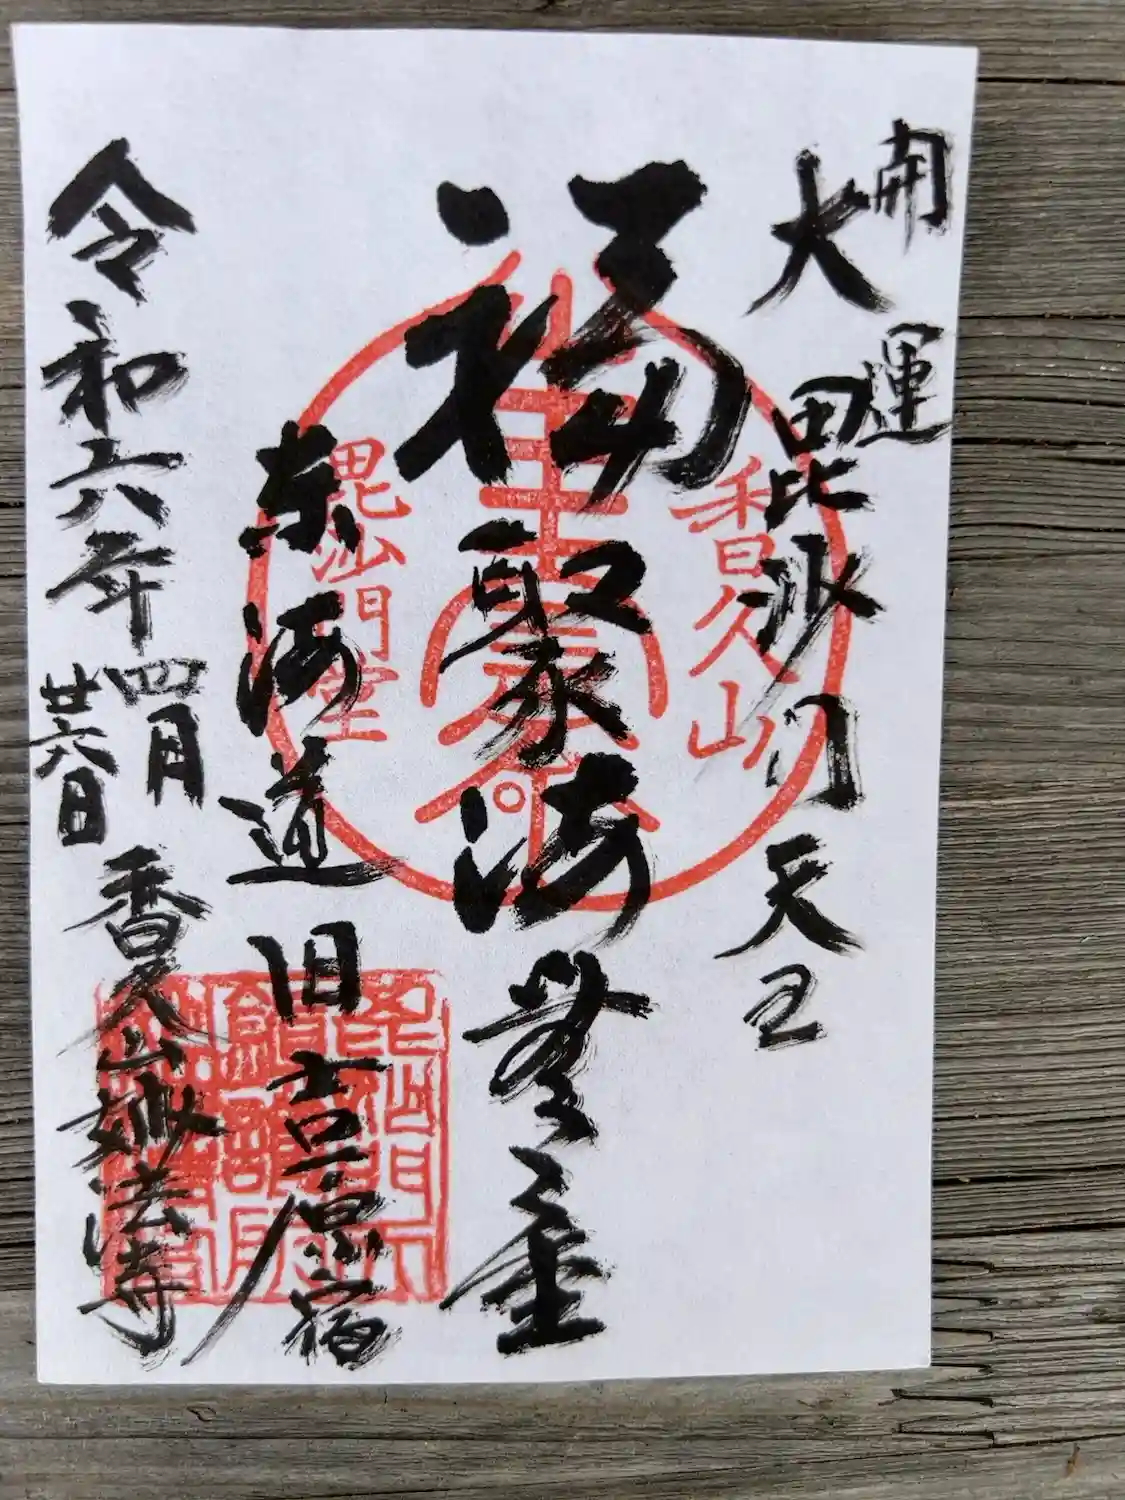 開運
大毘沙门天王
福聚海無量
东海道旧吉原宿
令和六年四月
廿六日
香久山妙法寺
香久山
毘沙門堂